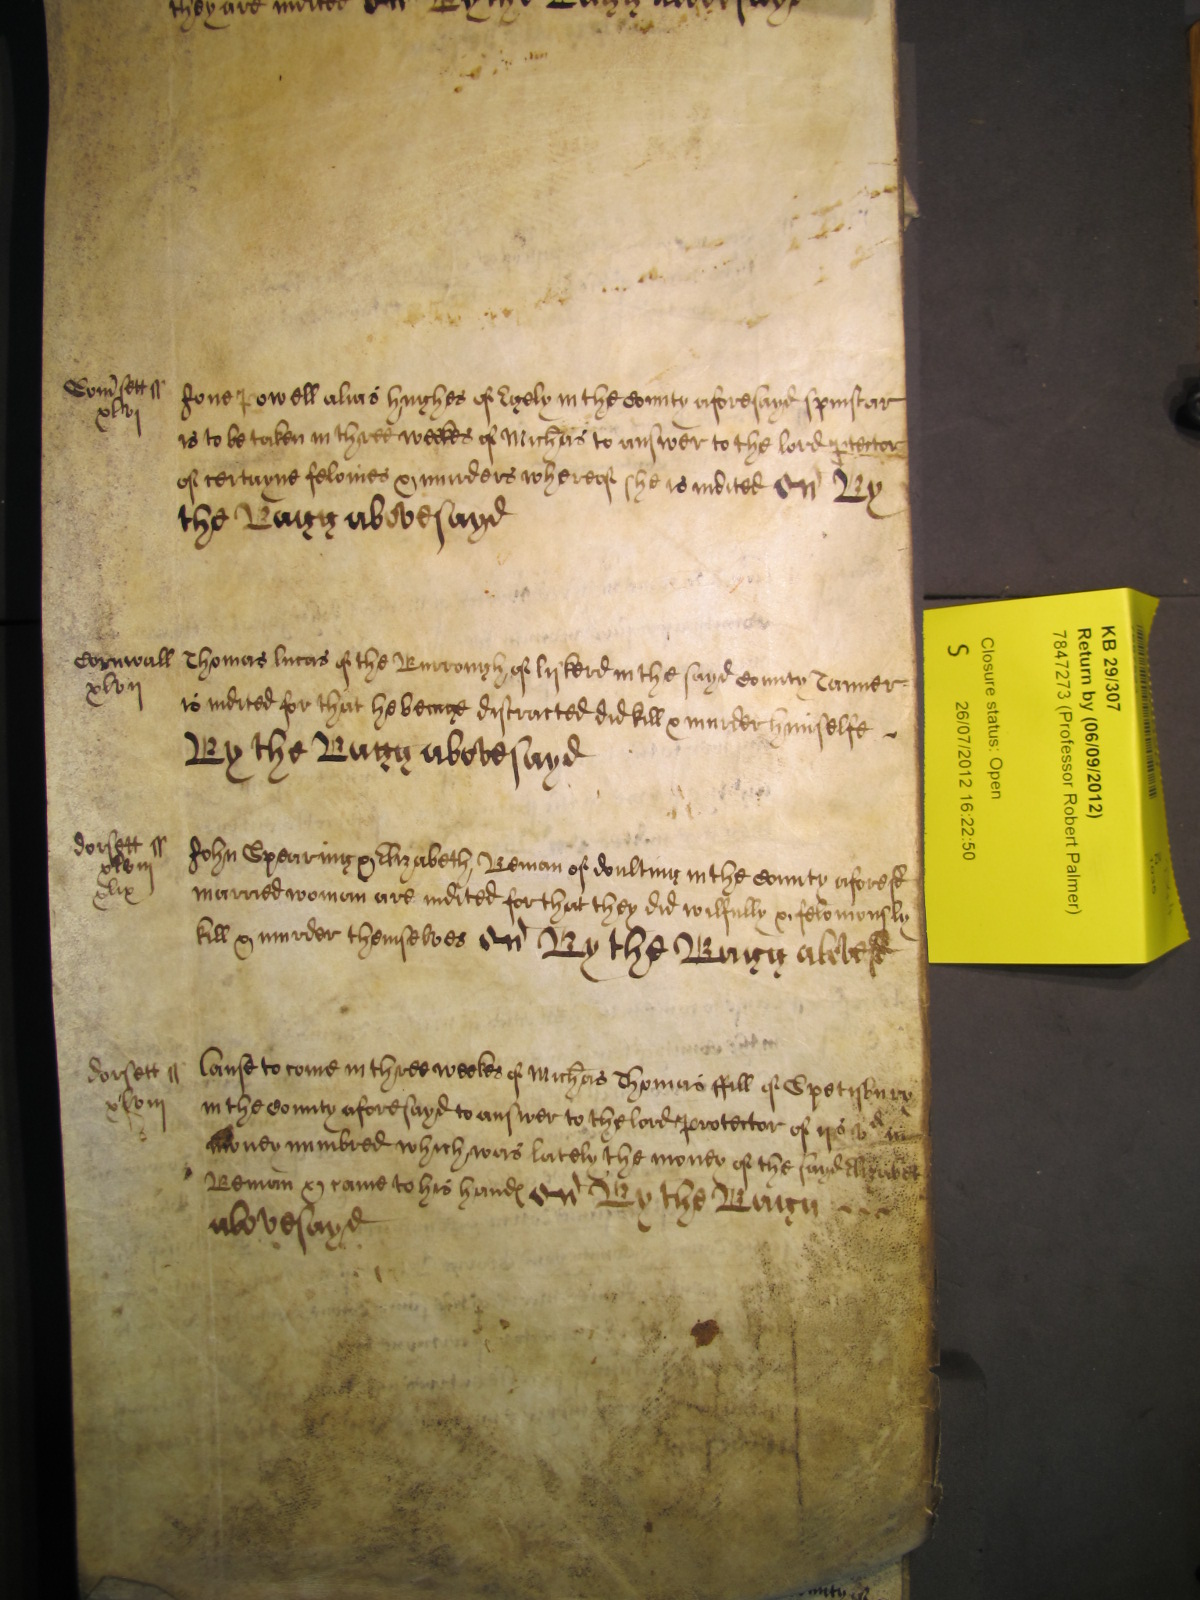 they are indited By the Bagg abovesayd
Som'sett ss
xlvj
Jone Powell alias hughes of in the County aforesayd spinstar
is to be taken in three weekes of Michas to answer to the lord ptector
of certayne felonies & murders whereof she is indited By
the Bagg abovesayd
Cornwall
xlvij
Thomas lucas of the Burrough of liskerd in the sayd County Tanner
is indited for that he beinge distracted did kill & murder himselfe
By the Bagg abovesayd
dorsett ss
xlviij
xlix
John Spearing & Elizabeth Beman of doulting in the County afores
married woman are indited for that they did wilfully & feloniously
kill & murder themselves By the Bagg aboves
dorsett ss
xlviij
Cause to come in three weekes of Michas Thomas ffill of Spetisbury
in the County aforesayd to answer to the lord protector of ijs vd in
money numbred which was lately the money of the sayd Elizabet
Beman & came to his hands By the Bagg
abovesayd
KB 29/307
Return by (06/09/2012)
7847273 (Professor Robert Palmer)
Closure status: Open
26/07/2012 16:22:50
S